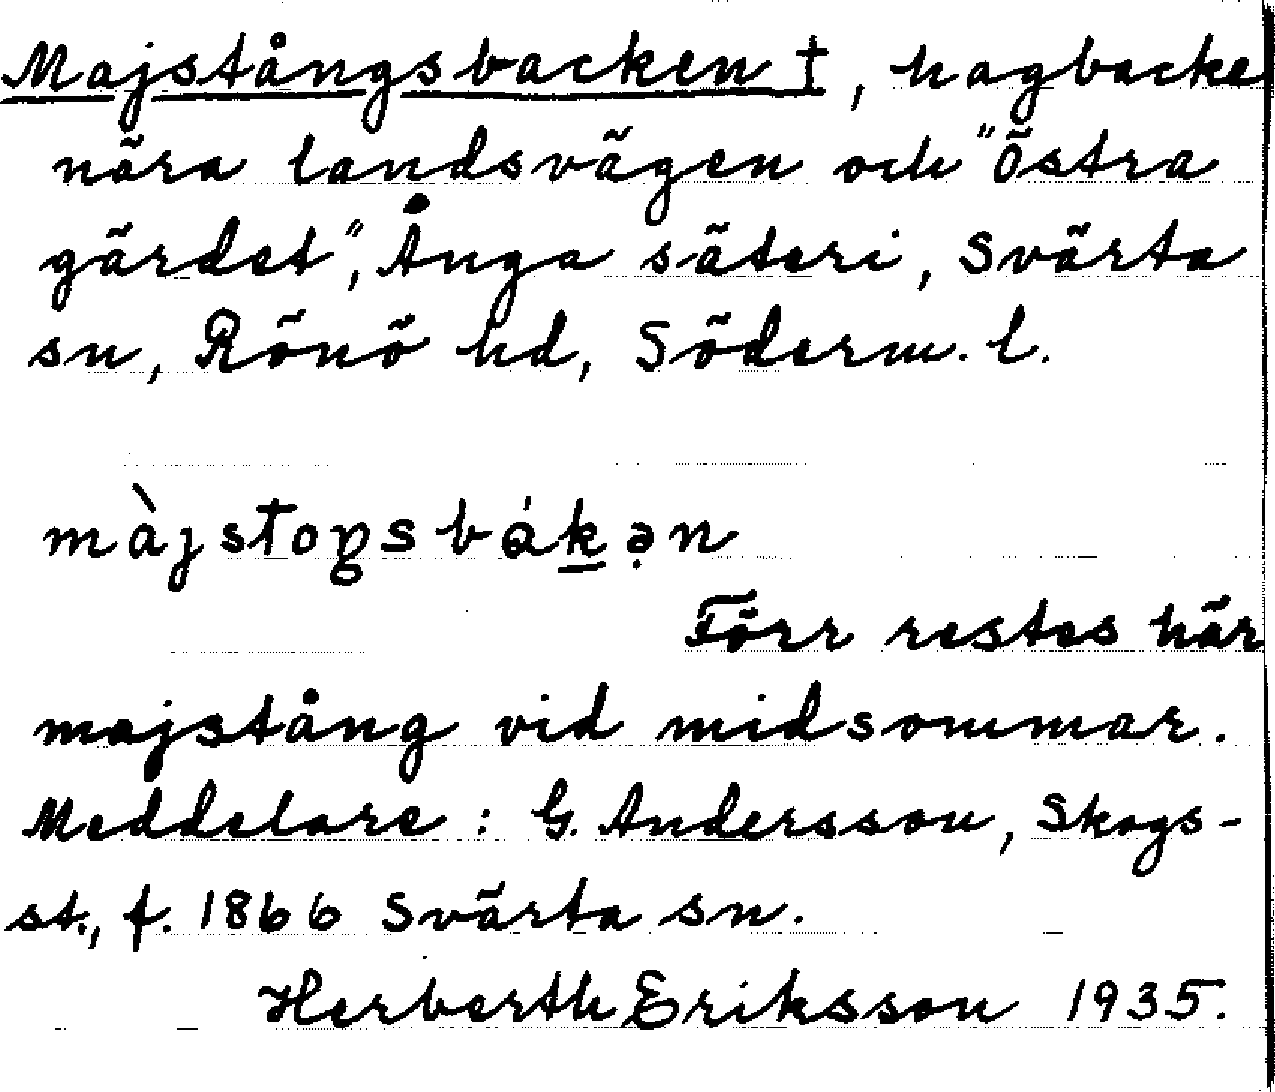 Majstångsbacken †, hagbacke
nära landsvägen och "Östra
gärdet", Ånga säteri, Svärta
sn, Rönö hd, Söderm. l.
màjstoŋsbákən
Förr restes här
majstång vid midsommar.
Meddelare: G. Andersson, Skogs-
st., f. 1866 Svärta sn.
Herberth Eriksson 1935.